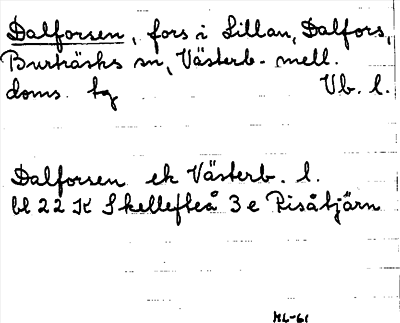 Dalforsen, fors i Lillån, Dalfors,
Burträsks sn, Västerb. mell.
doms. tg Vb. l.
Dalforsen ek Västerb. l.
bl 22 K Skellefteå 3 e Risåtjärn
ML-61